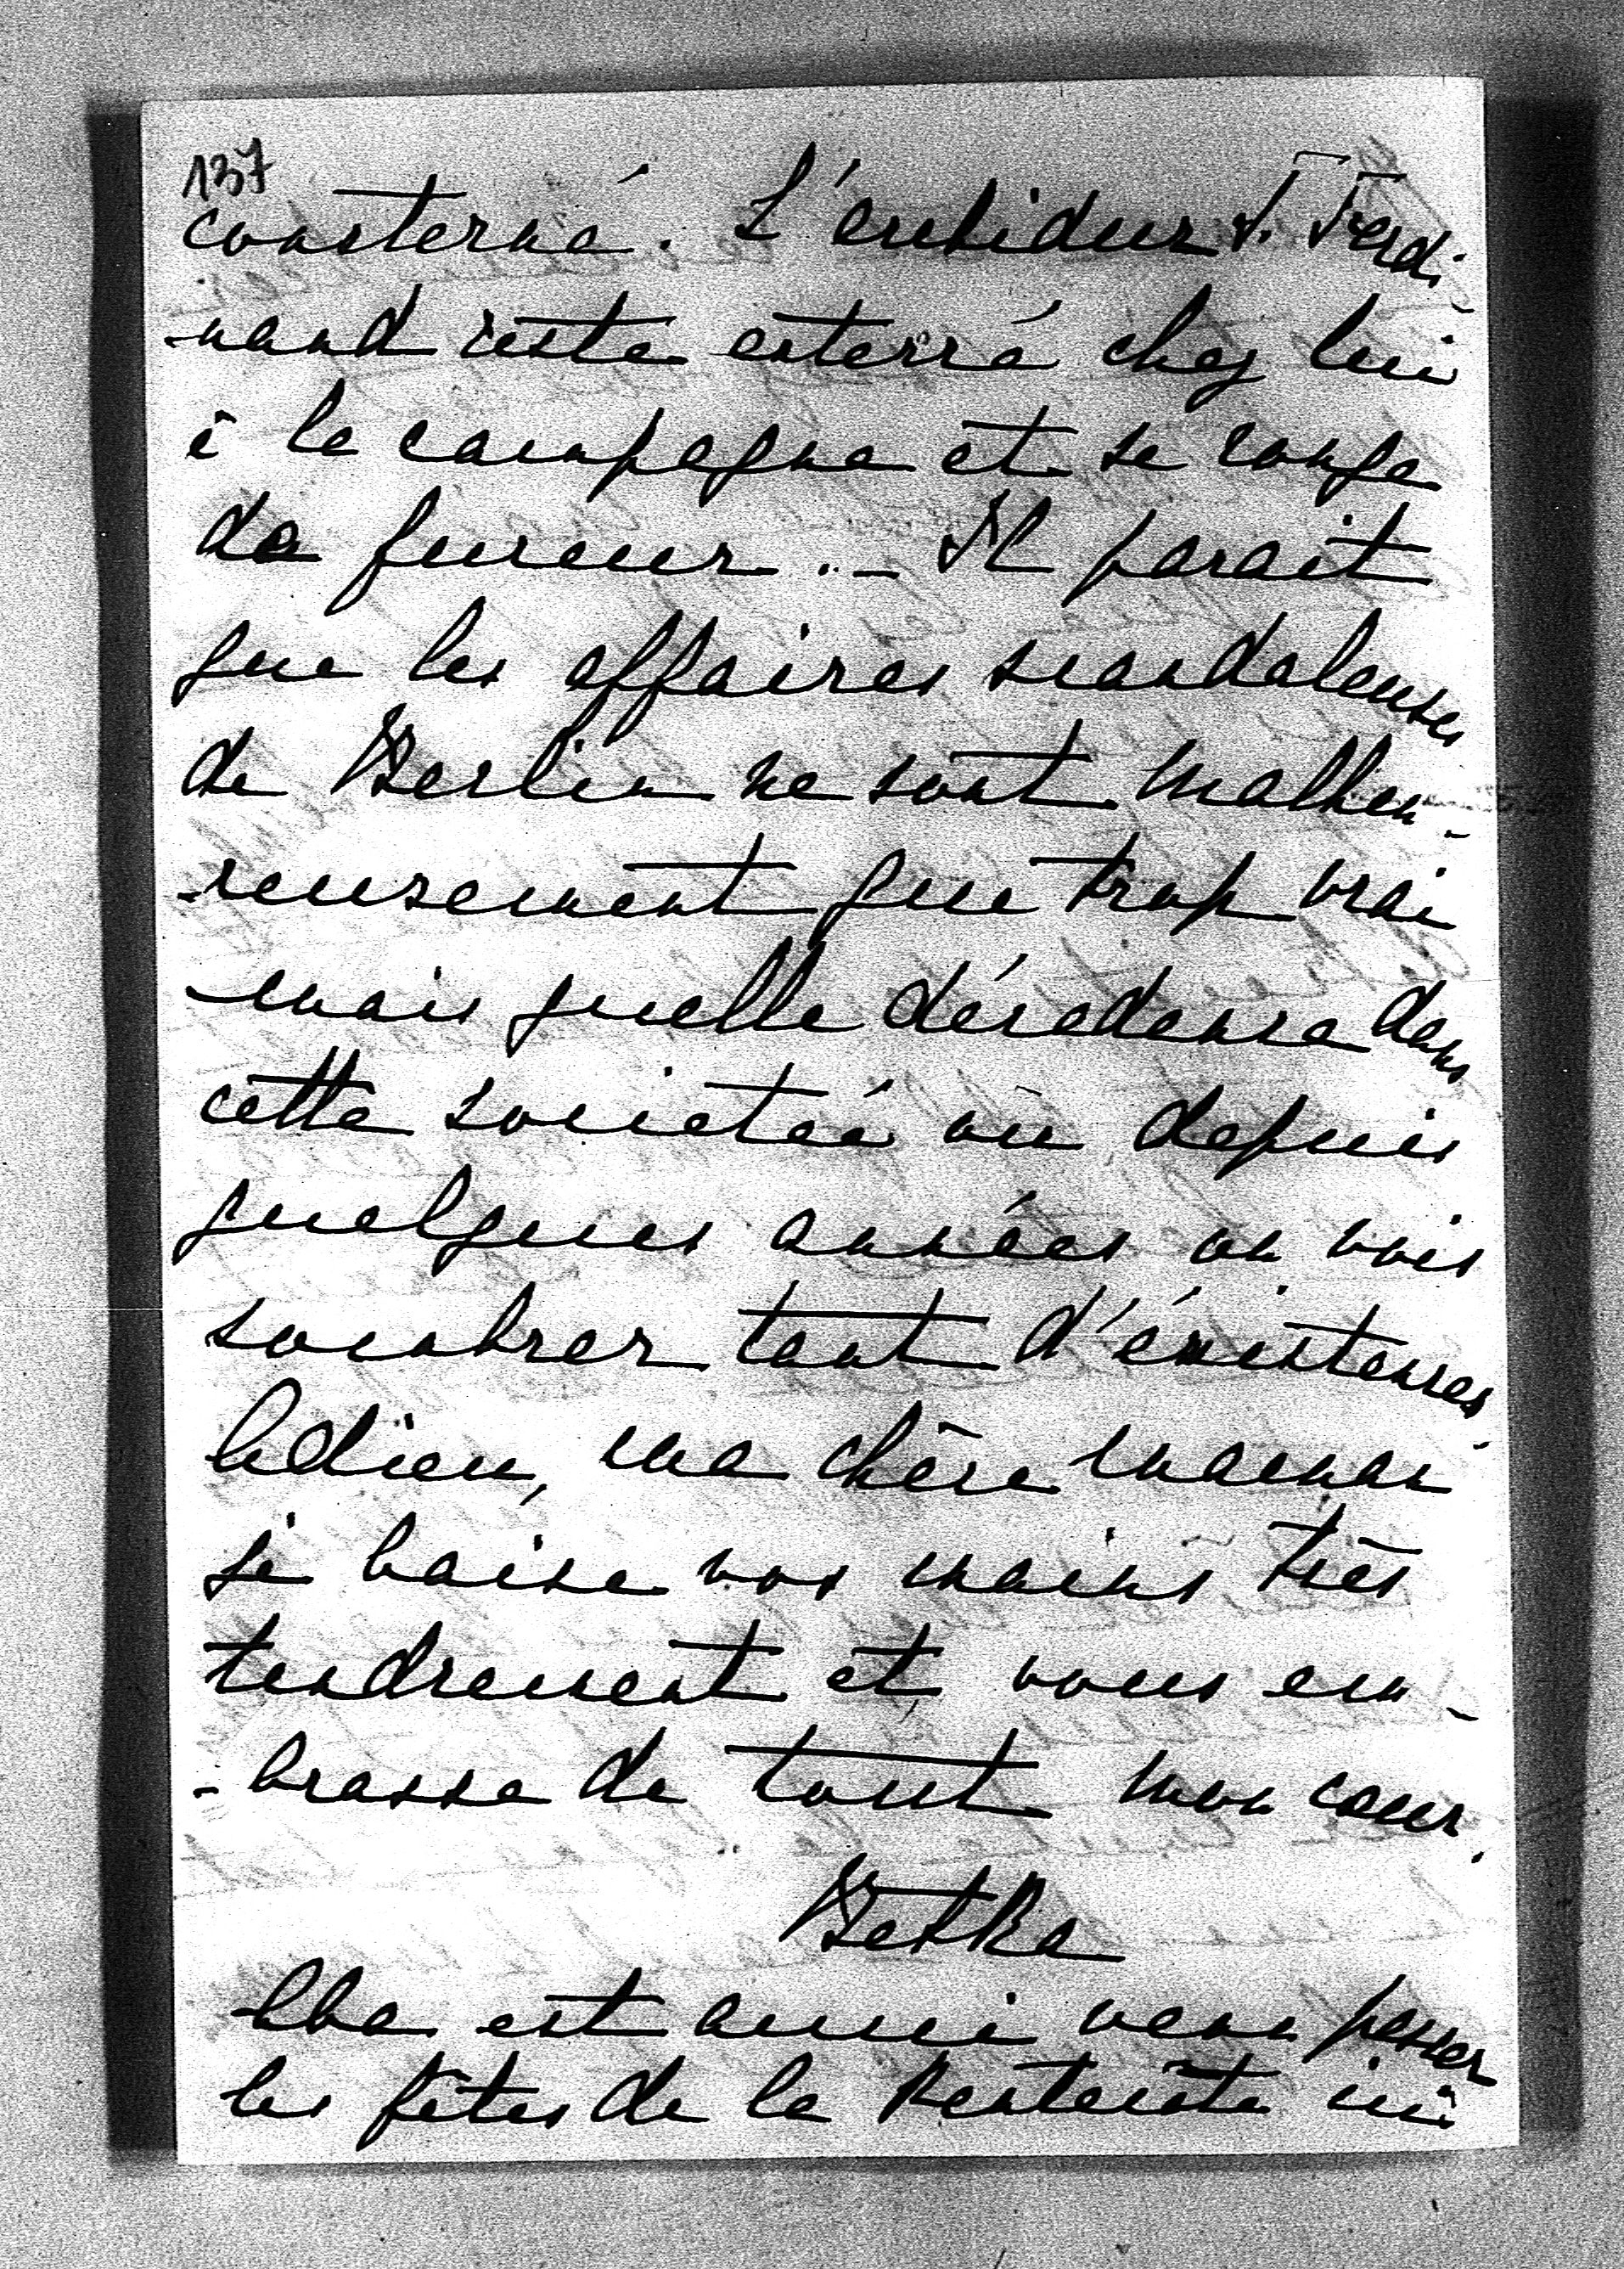 137
consterné. L'archiduc F. Ferdi-
-nand reste enterré chez lui
à la campagne et se ronge
de fureur. - Il parait
que les affaires scandaleuses
de Berlin ne sont malheu-
-reusement que trop vrai
mais quelle décadence dans
cette societée où depuis
quelques années on vois
sombrer tant d'éxistences.
Adieu, ma chère maman
je baise vos mains très
tendrement et vous em-
-brasse de tout mon coeur.
Betka
est aussi venu passer
les fêtes de la Pentecôte ici